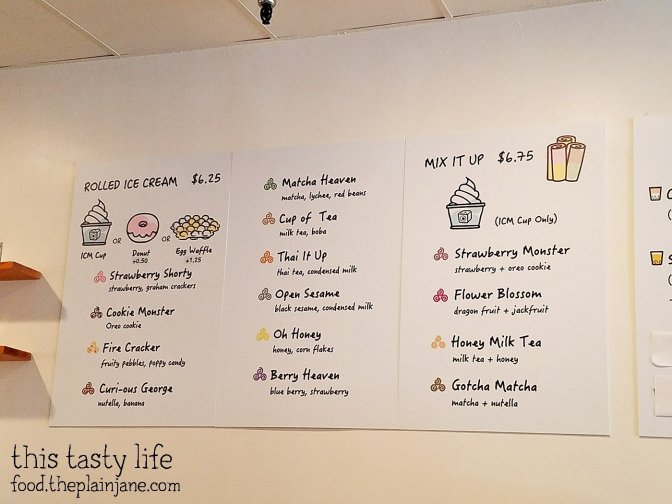 ROLLED ICE CREAM $6.25
ICM Cup
OR
Donut
+0.50
OR
Egg Waffle
+1.25
Strawberry Shorty
strawberry, graham crackers
Cookie Monster
Oreo cookie
Fire Cracker
fruity pebbles, poppy candy
Curi-ous George
nutella, banana
Matcha Heaven
matcha, lychee, red beans
Cup of Tea
milk tea, boba
Thai It Up
thai tea, condensed milk
Open Sesame
black sesame, condensed milk
Oh Honey
honey, corn flakes
Berry Heaven
blue berry, strawberry
MIX IT UP $6.75
(ICM Cup Only)
Strawberry Monster
strawberry + oreo cookie
Flower Blossom
dragon fruit + jackfruit
Honey Milk Tea
milk tea + honey
Gotcha Matcha
matcha + nutella
this tasty life
food.theplainjane.com